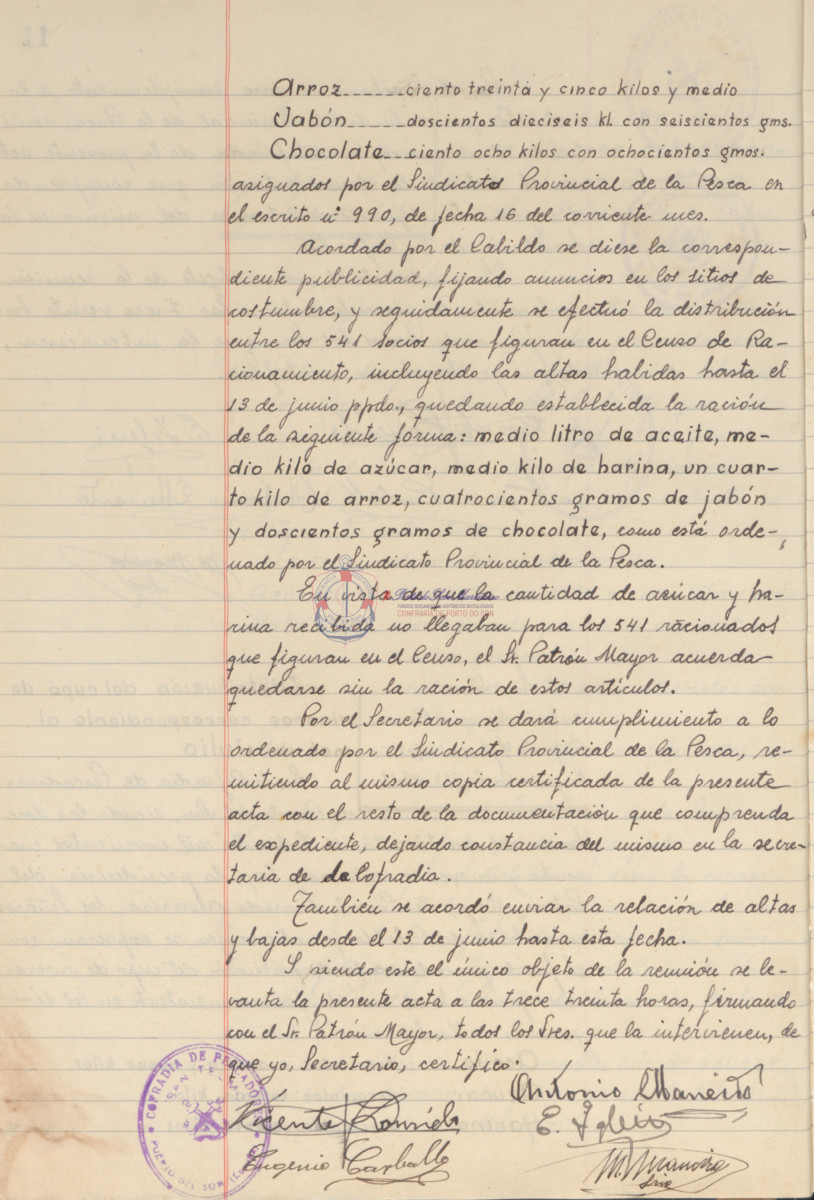 Arroz......ciento treinta y cinco kilos y medio
Jabón.....doscientos dieciseis kl. con seiscientos gms.
Chocolate...ciento ocho kilos con ochocientos gmos.
asignados por el Sindicato Provincial de la Pesca en
el escrito nº 990, de fecha 16 del corriente mes.
Acordado por el Cabildo se diese la correspon-
diente publicidad, fijando anuncios en los sitios de
costumbre, y seguidamente se efectuó la distribución
entre los 541 socios que figuran en el Censo de Ra-
cionamiento, incluyendo las altas habidas hasta el
13 de junio ppdo., quedando establecida la ración
de la siguiente forma: medio litro de aceite, me-
dio kilo de azúcar, medio kilo de harina, un cuar-
to kilo de arroz, cuatrocientos gramos de jabón
y doscientos gramos de chocolate, como está orde-
nado por el Sindicato Provincial de la Pesca.
En vista de que la cantidad de azúcar y ha-
CONFRARÍA DE PORTO DO SON
rina recibida no llegaban para los 541 racionados
que figuran en el Censo, el Sr. Patrón Mayor acuerda
quedarse sin la ración de estos artículos.
Por el Secretario se dará cumplimiento a lo
ordenado por el Sindicato Provincial de la Pesca, re-
mitiendo al mismo copia certificada de la presente
acta con el resto de la documentación que comprenda
el expediente, dejando constancia del mismo en la secre-
taria de la Cofradia.
También se acordó enviar la relación de altas
y bajas desde el 13 de junio hasta esta fecha.
Y siendo este el único objeto de la reunión se le-
vanta la presente acta a las trece treinta horas, firmando
con el Sr. Patrón Mayor, todos los Sres. que la intervienen, de
que yo, Secretario, certifico.
COFRADIA DE PESCADORES
SAN TELMO
PUERTO DEL SON
Antonio Maneiro
Vicente
Eugenio Carballo